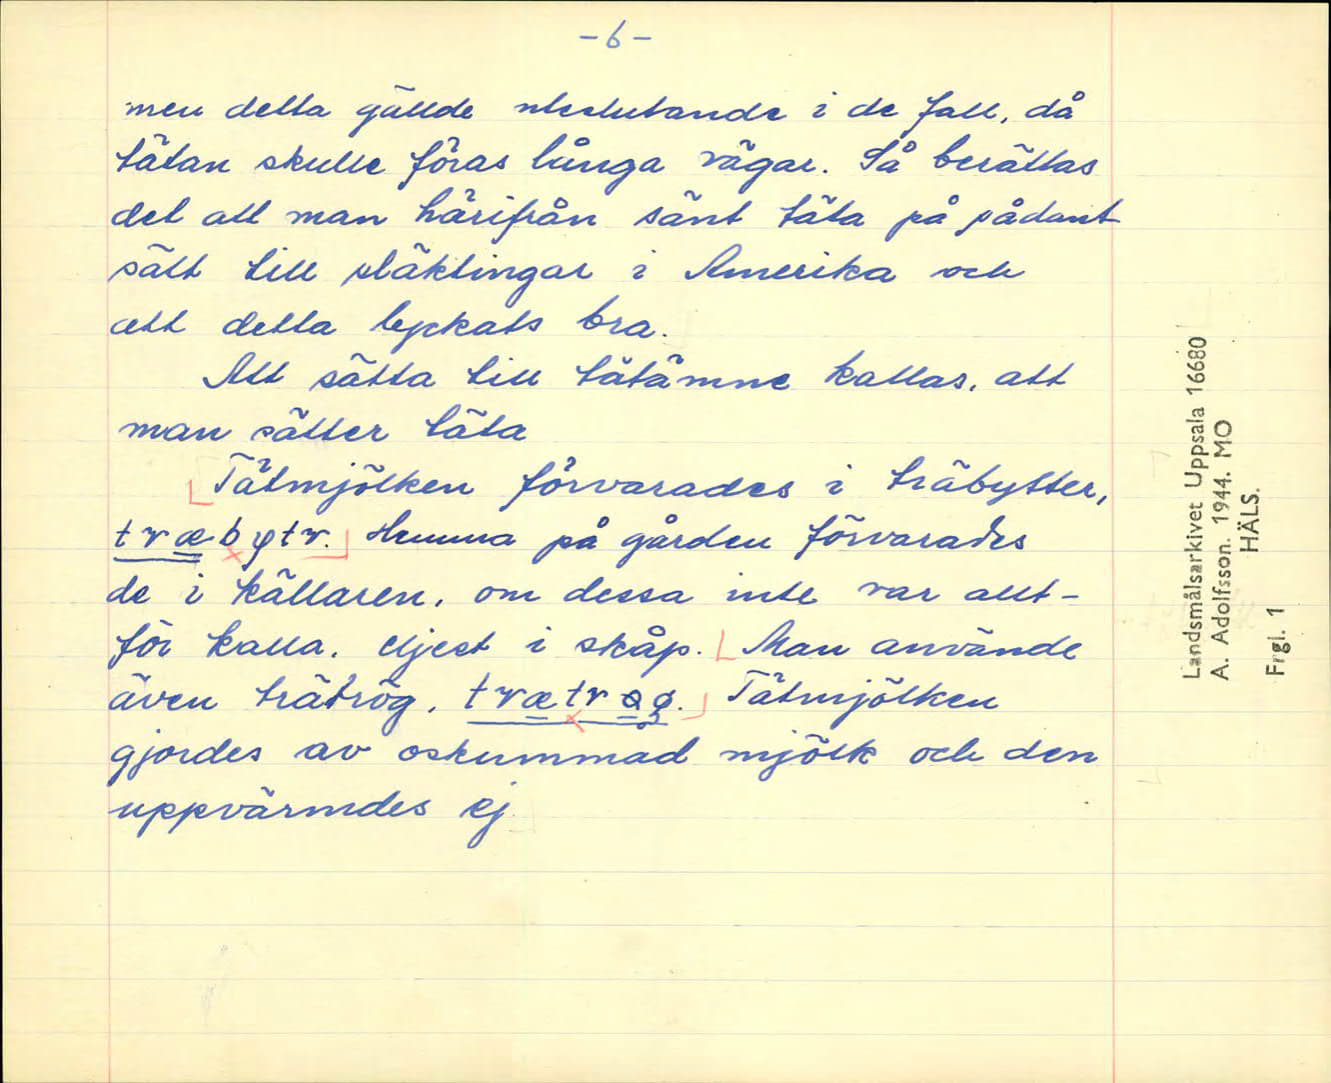 -6-
men detta gällde uteslutande i de fall, då
tätan skulle föras långa vägar. Så berättas
det att man härifrån sänt täta på sådant
sätt till släktingar i Amerika och
att detta lyckats bra.
Att sätta till tätämne kallas, att
man sätter täta
Tätmjölken förvarades i träbytter,
træbytr. Hemma på gården förvarades
de i källaren, om dessa inte var allt-
för kalla, eljest i skåp. Man använde
även trätrög, Tätmjölken
gjordes av oskummad mjölk och den
uppvärmdes ej
Landsmålsarkivet Uppsala 16680
A. Adolfsson. 1944. MO
HÄLS.
Frgl. 1